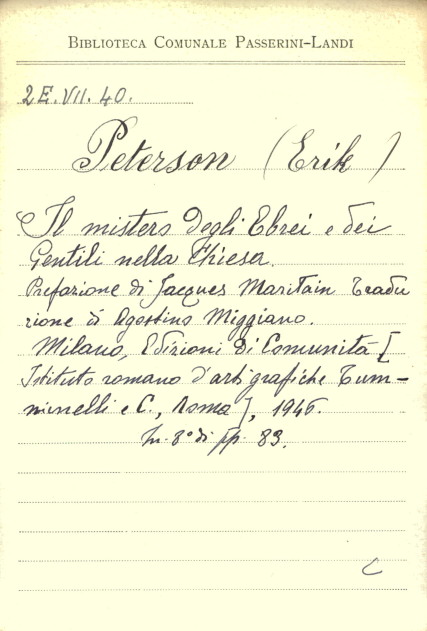 BIBLIOTECA COMUNALE PASSERINI-LANDI
2E.VII.40.
Peterson (Erik)
Il mistero degli Ebrei e dei
Gentili nella Chiesa.
Prefazione di Jacques Maritain Tradu
zione di Agostino Miggiano.
Milano, Edizioni di Comunità [
Istituto romano d'arti grafiche Tum-
minelli e C., Roma], 1946.
In-8° di pp. 83.
C